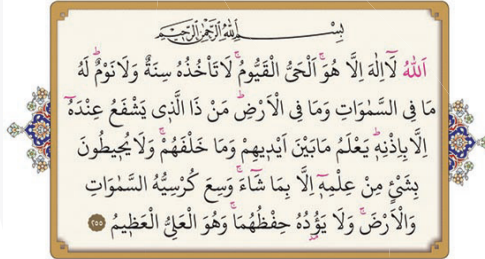 بِسْمِ اللّٰهِ الرَّحْمٰنِ الرَّحٖيمِ
اَللّٰهُ لَٓا اِلٰهَ اِلَّا هُوَۚ اَلْحَىُّ الْقَيُّومُۚ لَا تَاْخُذُهُ سِنَةٌ وَلَا نَوْمٌۜ لَهُ
مَا فِى السَّمٰوَاتِ وَمَا فِى الْاَرْضِۜ مَنْ ذَا الَّذٖى يَشْفَعُ عِنْدَهُٓ
اِلَّا بِاِذْنِهٖۜ يَعْلَمُ مَابَيْنَ اَيْدٖيهِمْ وَمَا خَلْفَهُمْۚ وَلَا يُحٖيطُونَ
بِشَىْءٍ مِنْ عِلْمِهٖٓ اِلَّا بِمَا شَٓاءَۚ وَسِعَ كُرْسِيُّهُ السَّمٰوَاتِ
وَالْاَرْضَۚ وَلَا يَؤُ۫دُهُ حِفْظُهُمَاۚ وَهُوَ الْعَلِىُّ الْعَظٖيمُ ٢٥٥